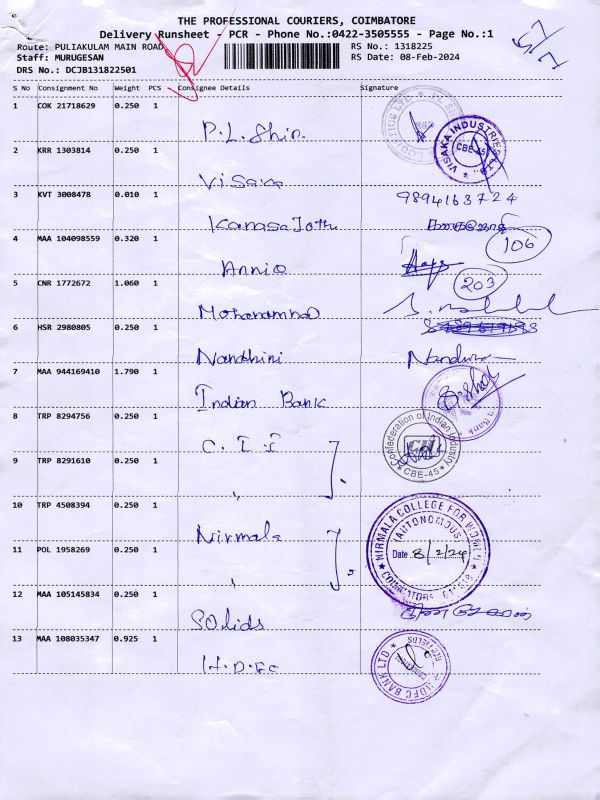 THE PROFESSIONAL COURIERS, COIMBATORE
Delivery Runsheet - PCR - Phone No.:0422-3505555 - Page No.:1
Route: PULIAKULAM MAIN ROAD RS No.: 1318225
Staff: MURUGESAN RS Date: 08-Feb-2024
DRS No.: DCJB131822501
S No Consignment No Weight PCS Consignee Details Signature
1 COK 21718629 0.250 1
P.L. Shin
2 KRR 1303814 0.250 1 VISAKA INDUSTRIES LTD CBE-45
Visaka
3 KVT 3008478 0.010 1 9894163724
Kanaga Jothi
4 MAA 104098559 0.320 1 106
Annie
5 CNR 1772672 1.060 1 203
Mohammad
6 HSR 2980805 0.250 1
Nandhini Nandhini
7 MAA 944169410 1.790 1
Indian Bank
8 TRP 8294756 0.250 1 Confederation of Indian Industry CII CBE-45
C.I.I
9 TRP 8291610 0.250 1
"
10 TRP 4508394 0.250 1 NIRMALA COLLEGE FOR WOMEN (AUTONOMOUS)
Nirmala Date 8/2/24
11 POL 1958269 0.250 1
"
12 MAA 105145834 0.250 1
Solids
13 MAA 108035347 0.925 1 HDFC BANK LTD
H.D.F.C